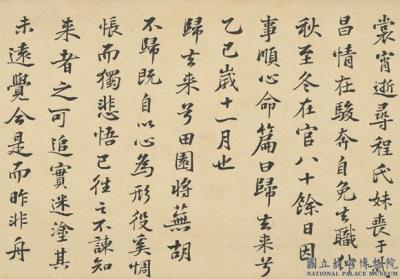 裳宵逝尋程氏妹喪于
昌情在駿奔自免去職仲
秋至冬在官八十餘日因
事順心命篇曰歸去來兮
乙巳歲十一月也
歸去来兮田園將蕪胡
不歸既自以心為形役奚惆
悵而獨悲悟已往之不諫知
来者之可追實迷塗其
未遠覺今是而昨非舟
國立故宮博物院
NATIONAL PALACE MUSEUM